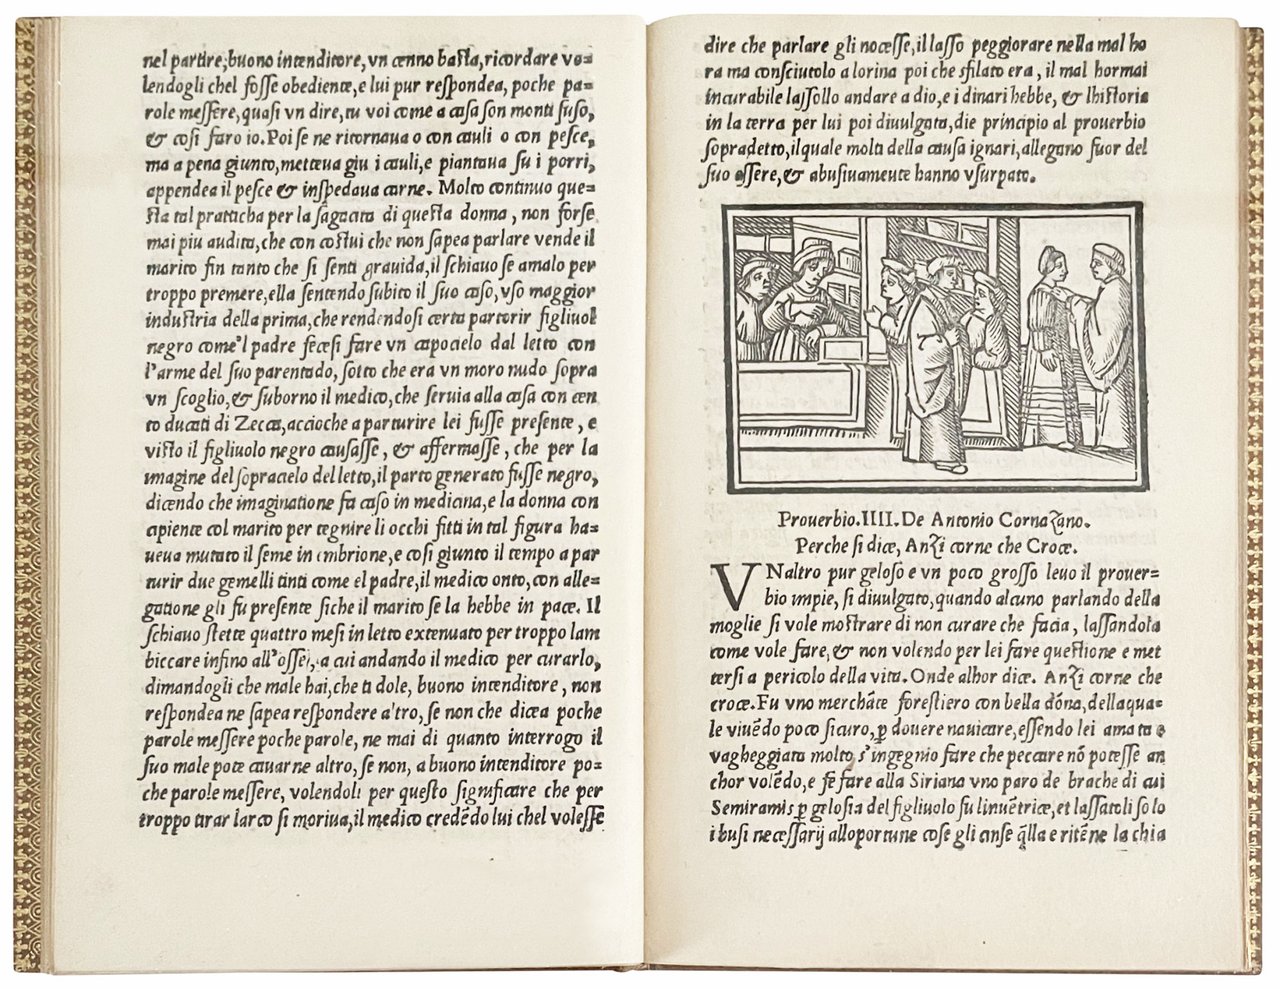 nel partire,buono intenditore,vn cenno basta,ricordare vo=
lendogli chel fosse obediente,e lui pur respondea, poche pa=
role messere,quasi vn dire,tu voi come a casa son monti suso,
& cosi faro io.Poi se ne ritornaua o con cauli o con pesce,
ma a pena giunto,metteua giu i cauli,e piantaua su i porri,
appendea il pesce & inspedaua carne. Molto continuo que=
sta tal pratticha per la sagacita di questa donna, non forse
mai piu audita,che con costui che non sapea parlare vende il
marito fin tanto che si senti grauida,il schiauo se amalo per
troppo premere,ella sentendo subito il suo caso,vso maggior
industria della prima,che rendendosi certa partorir figliuol
negro come'l padre fecesi fare vn capocielo dal letto con
l'arme del suo parentado, sotto che era vn moro nudo sopra
vn scoglio,& suborno il medico,che seruia alla casa con cen
to ducati di Zecca,accioche a parturire lei fusse presente, e
visto il figliuolo negro causasse, & affermasse, che per la
imagine del sopracielo del letto,il parto generato fusse negro,
dicendo che imaginatione fa caso in medicina,e la donna con
cipiente col marito per tegnire li occhi fitti in tal figura ha=
ueua mutato il seme in embrione,e cosi giunto il tempo a par
turir due gemelli tinti come el padre,il medico onto,con alle=
gatione gli fu presente siche il marito se la hebbe in pace. Il
schiauo stette quattro mesi in letto extenuato per troppo lam
biccare infino all'osse, a cui andando il medico per curarlo,
dimandogli che male hai,che ti dole, buono intenditore, non
respondea ne sapea respondere altro, se non che dicea poche
parole messere poche parole, ne mai di quanto interrogo il
suo male pote cauarne altro, se non, a buono intenditore po=
che parole messere, volendoli per questo significare che per
troppo tirar larco si moriua,il medico credēdo lui chel volesse
dire che parlare gli nocesse,il lasso peggiorare nella mal ho
ra ma consciutolo a lorina poi che sfilato era, il mal hormai
incurabile lassollo andare a dio,e i dinari hebbe, & lhistoria
in la terra per lui poi diuulgata,die principio al prouerbio
sopradetto,il quale molti della causa ignari,allegano fuor del
suo essere,& abusiuamente hanno vsurpato.
Prouerbio.IIII.De Antonio Cornazano.
Perche si dice, Anzi corne che Croce.
VNaltro pur geloso e vn poco grosso leuo il prouer=
bio impie, si diuulgato,quando alcuno parlando della
moglie si vole mostrare di non curare che facia, lassandola
come vole fare,& non volendo per lei fare questione e met
tersi a pericolo della vita.Onde alhor dice. Anzi corne che
croce.Fu vno merchāte forestiero con bella dōna,della qua=
le viuēdo poco sicuro,ꝑ douere nauicare,essendo lei amata e
vagheggiata molto, s'ingegnio fare che peccare nō potesse an
chor volēdo,e fe fare alla Siriana vno paro de brache di cui
Semiramis ꝑ gelosia del figliuolo fu linuētrice,et lassatoli solo
i busi necessarij alloportune cose gli cinse q̄lla e ritēne la chia